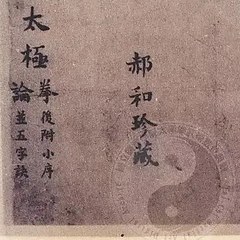 郝和珍藏
太極拳論
後附小序
並五字訣